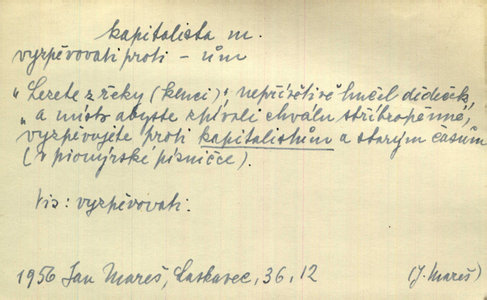 kapitalista m.
vyzpěvovati proti - ům
„Lezete z řeky (kluci)", nepřívětivě hučel dědeček,
„a místo abyste zpívali chválu stříbropěnné,
vyzpěvujete proti kapitalistům a starým časům
(v pionýrské písničce).
Viz: vyzpěvovati.
1956 Jan Mareš, Laskavec, 36, 12 (J. Mareš)